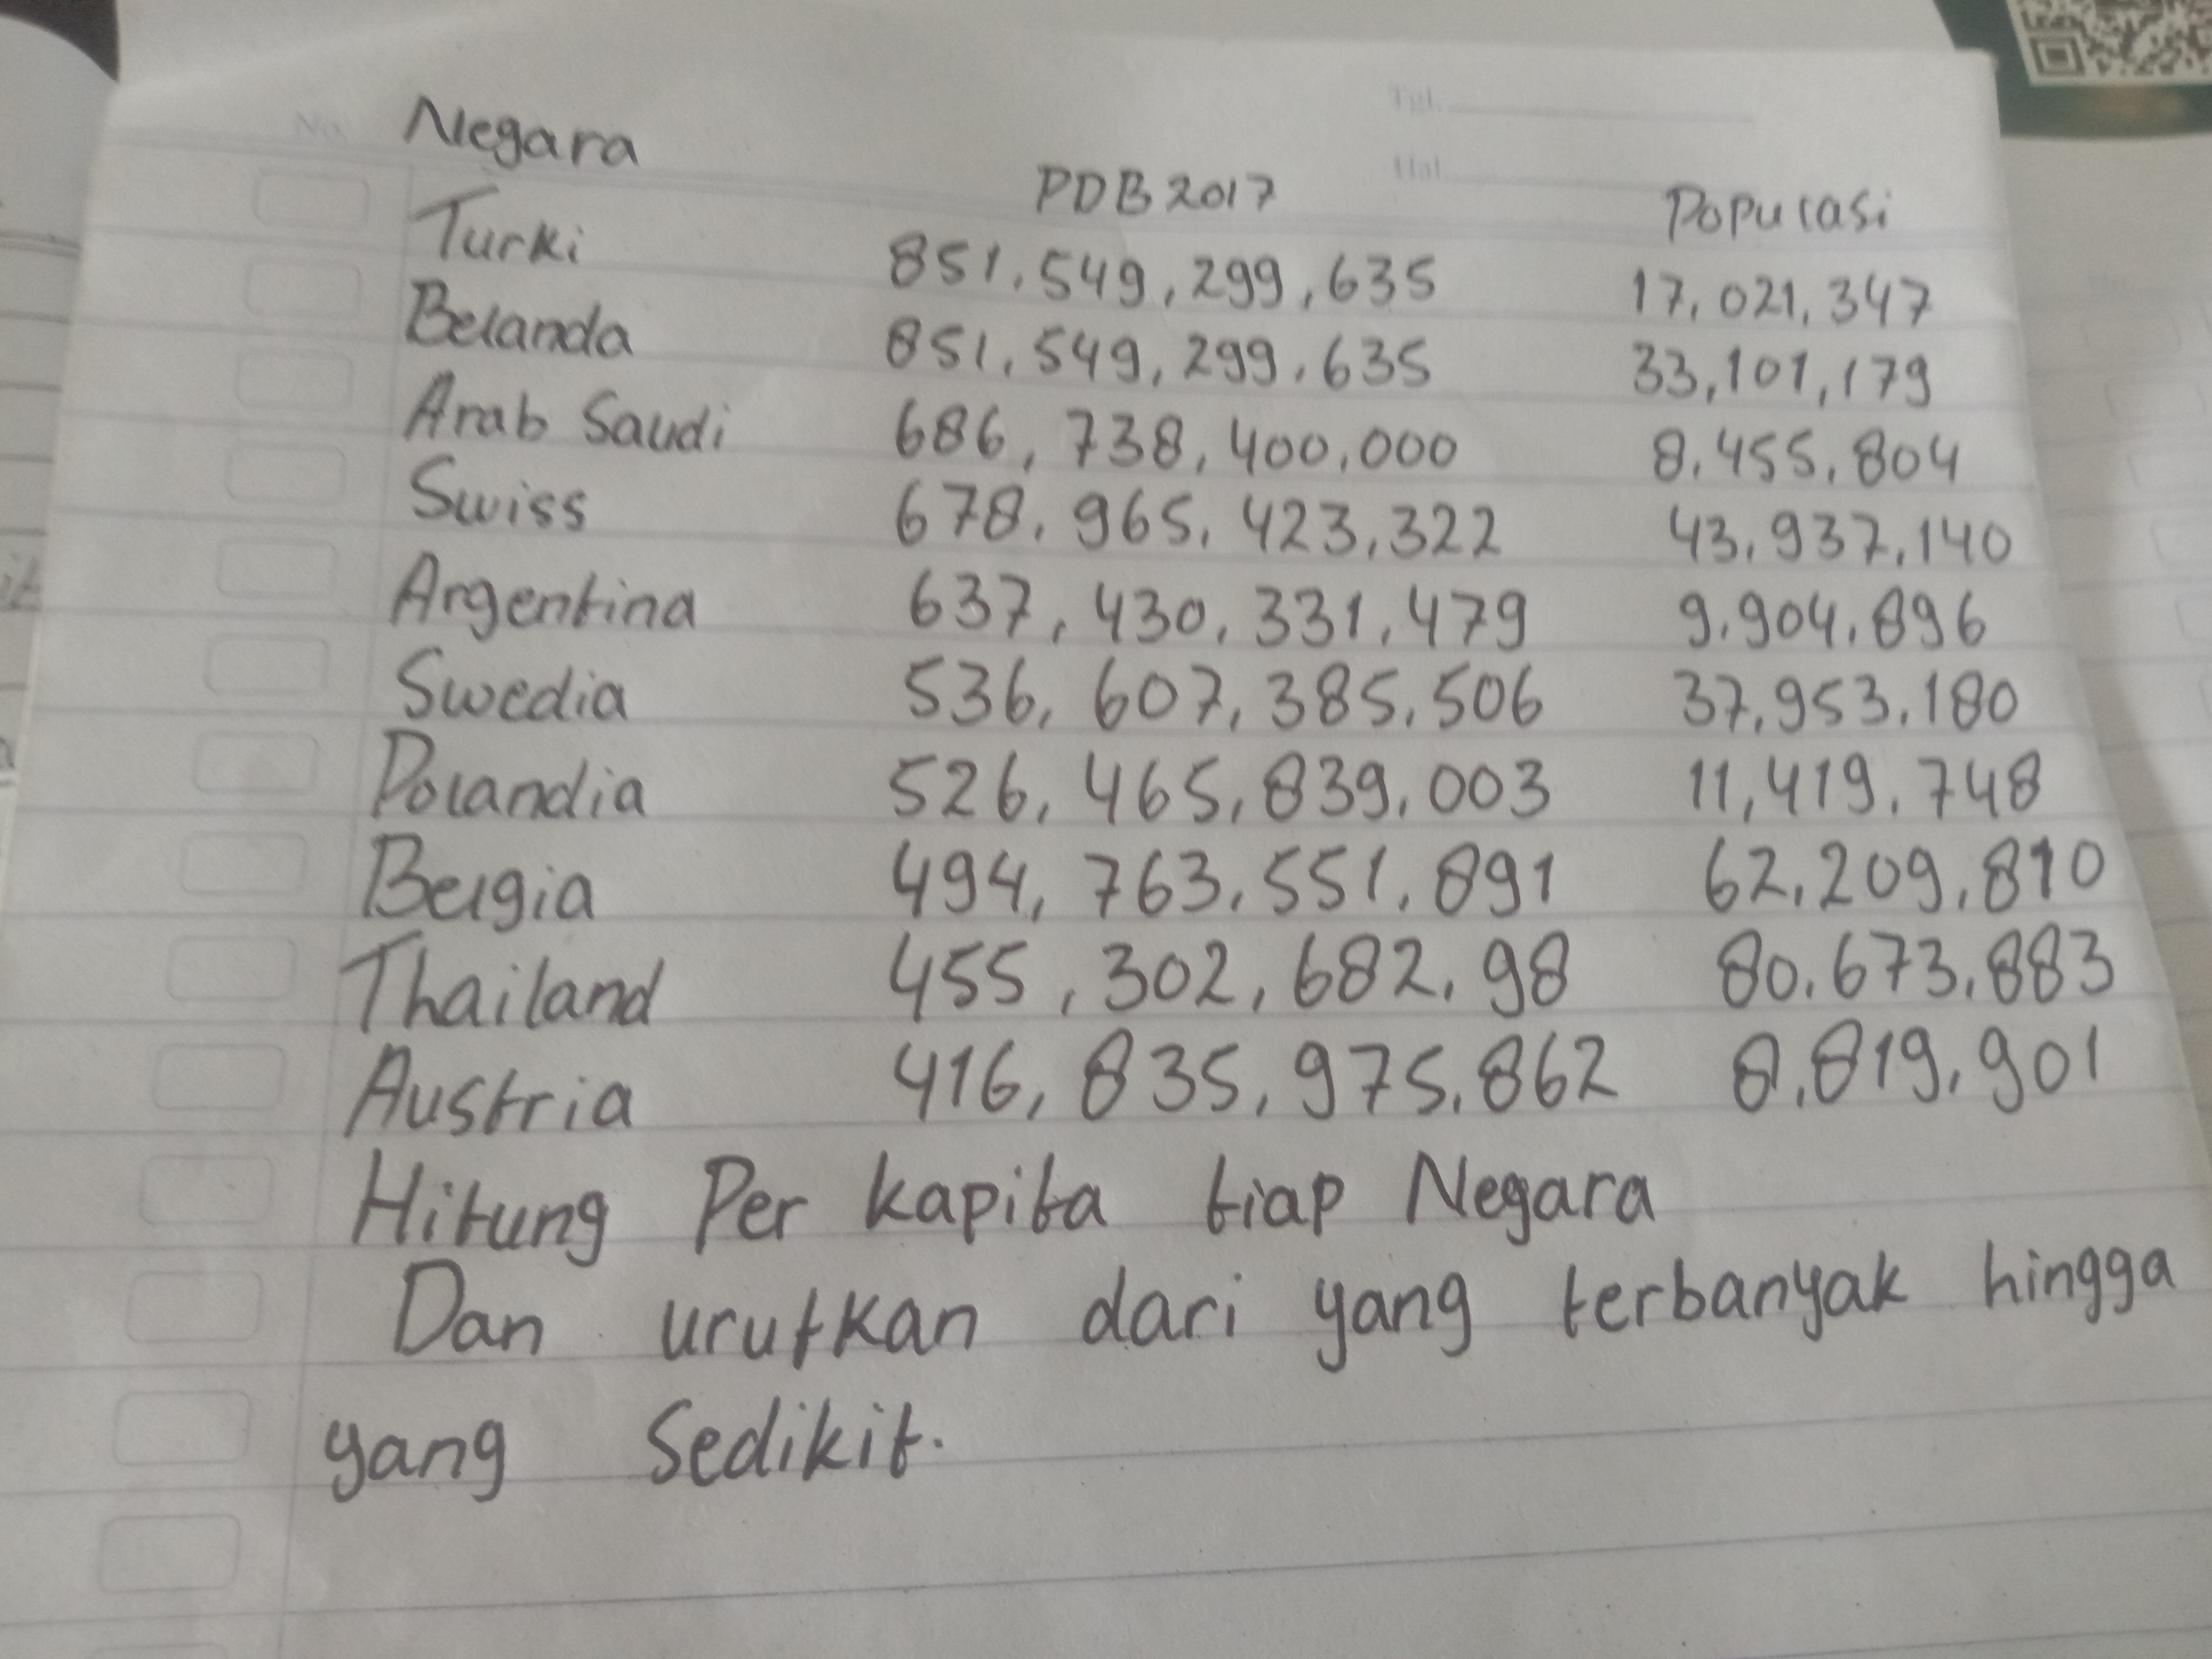 No. Negara Tgl.
PDB 2017 Hal. Populasi
Turki 851,549,299,635 17,021,347
Belanda 851,549,299,635 33,101,179
Arab Saudi 686,738,400,000 8,455,804
Swiss 678,965,423,322 43,937,140
Argentina 637,430,331,479 9,904,896
Swedia 536,607,385,506 37,953,180
Polandia 526,465,839,003 11,419,748
Belgia 494,763,551,891 62,209,810
Thailand 455,302,682,98 80,673,883
Austria 416,835,975,862 8,819,901
Hitung Per kapita tiap Negara
Dan urutkan dari yang terbanyak hingga
yang Sedikit.